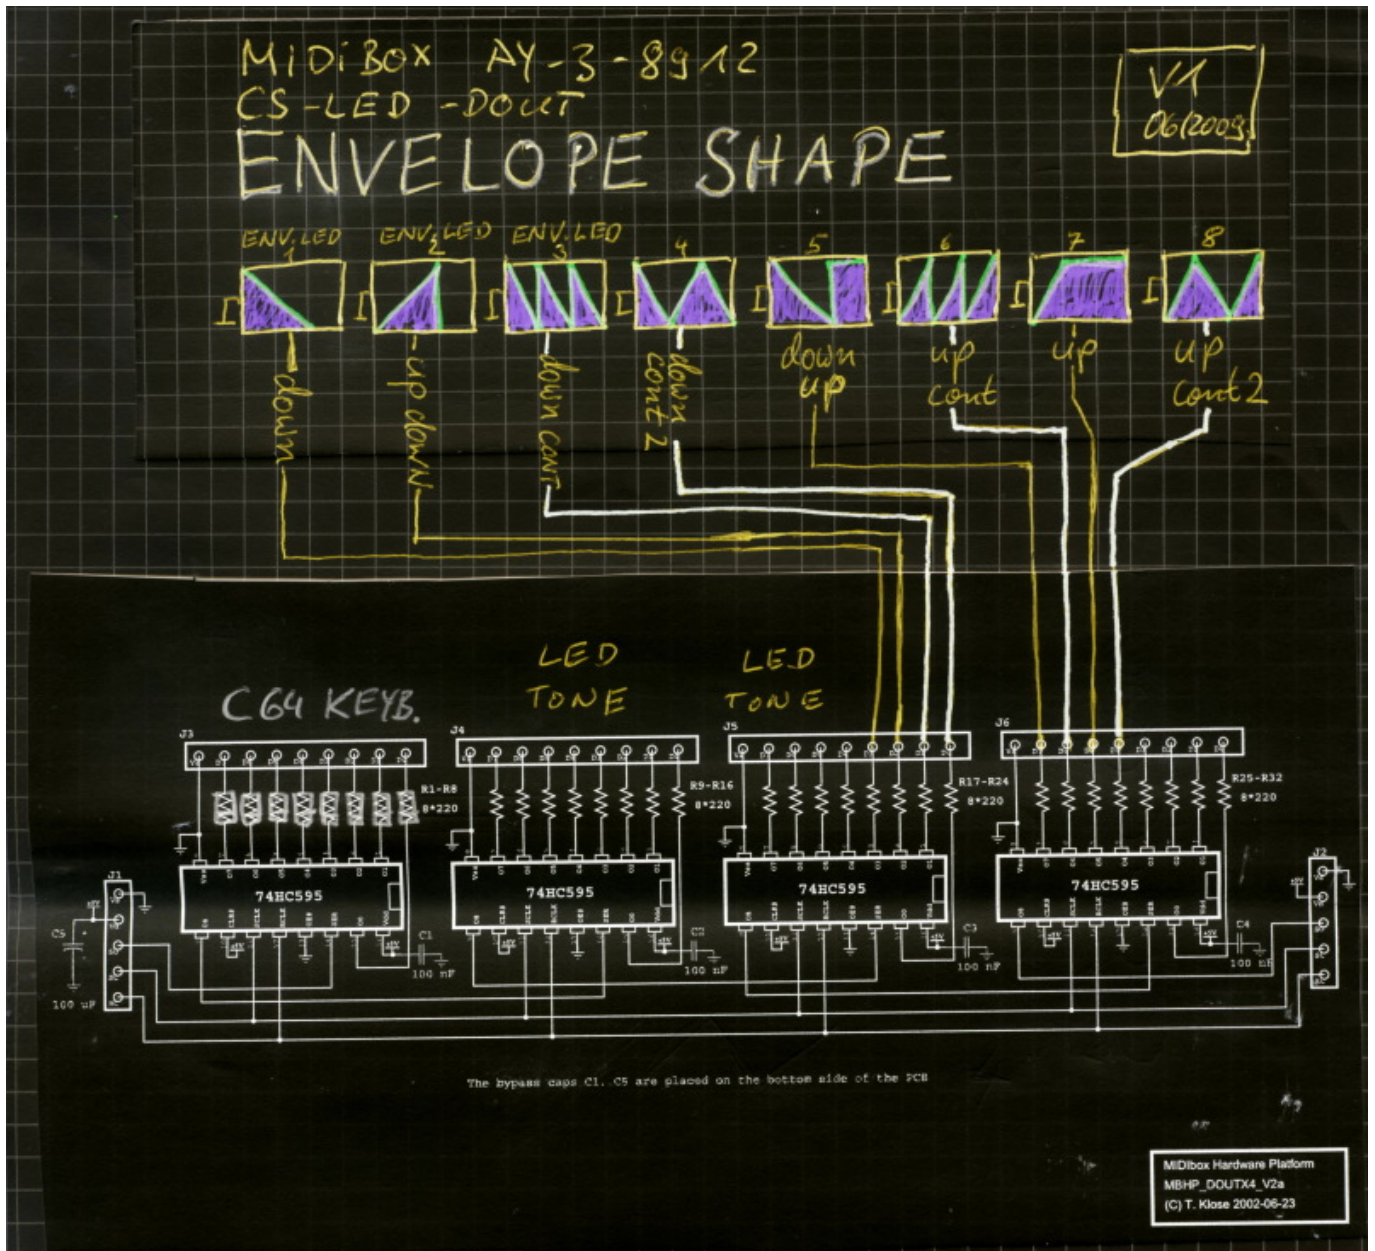 MIDIBOX AY-3-8912
CS-LED-DOUT
ENVELOPE SHAPE
V1
06/2009
ENV.LED ENV.LED ENV.LED
1 2 3 4 5 6 7 8
down
up down
down cont
down
cont 2
down
up
up
cont
up
up
cont 2
LED
TONE
LED
TONE
C64 KEYB.
J3 J4 J5 J6
R1-R8
8*220
R9-R16
8*220
R17-R24
8*220
R25-R32
8*220
74HC595 74HC595 74HC595 74HC595
J1 J2
C5
100 uF
C1
100 nF
C2
100 nF
C3
100 nF
C4
100 nF
The bypass caps C1..C5 are placed on the bottom side of the PCB
MIDIbox Hardware Platform
MBHP_DOUTX4_V2a
(C) T. Klose 2002-06-23